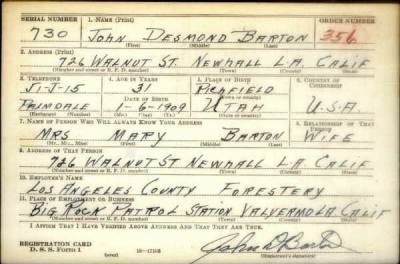 SERIAL NUMBER 1. NAME (Print) ORDER NUMBER
730 JOHN DESMOND BARTON 356
(First) (Middle) (Last)
2. ADDRESS (Print)
726 WALNUT ST. NEWHALL L.A. CALIF
(Number and street or R. F. D. number) (Town) (County) (State)
3. TELEPHONE 4. AGE IN YEARS 5. PLACE OF BIRTH 6. COUNTRY OF CITIZENSHIP
J1-J-15 31 RICHFIELD
DATE OF BIRTH
PALMDALE 1-6-1909 UTAH U.S.A
7. NAME OF PERSON WHO WILL ALWAYS KNOW YOUR ADDRESS 8. RELATIONSHIP OF THAT PERSON
MRS MARY BARTON WIFE
(Mr., Mrs., Miss) (First) (Middle) (Last)
9. ADDRESS OF THAT PERSON
726 WALNUT ST NEWHALL L.A CALIF
(Number and street or R. F. D. number) (Town) (County) (State)
10. EMPLOYER'S NAME
LOS ANGELES COUNTY FORESTERY
11. PLACE OF EMPLOYMENT OR BUSINESS
BIG ROCK PATROL STATION VALYERMO L.A. CALIF
(Number and street or R. F. D. number) (Town) (County) (State)
I AFFIRM THAT I HAVE VERIFIED ABOVE ANSWERS AND THAT THEY ARE TRUE.
REGISTRATION CARD
D. S. S. FORM 1 (over) John D Barton
(Registrant's signature)